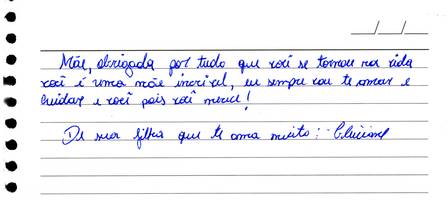 Mãe, obrigada por tudo que você se tornou na vida
você é uma mãe incrivel, eu sempre vou te amar e
cuidar e você pois você merece!
De sua filha que te ama muito: